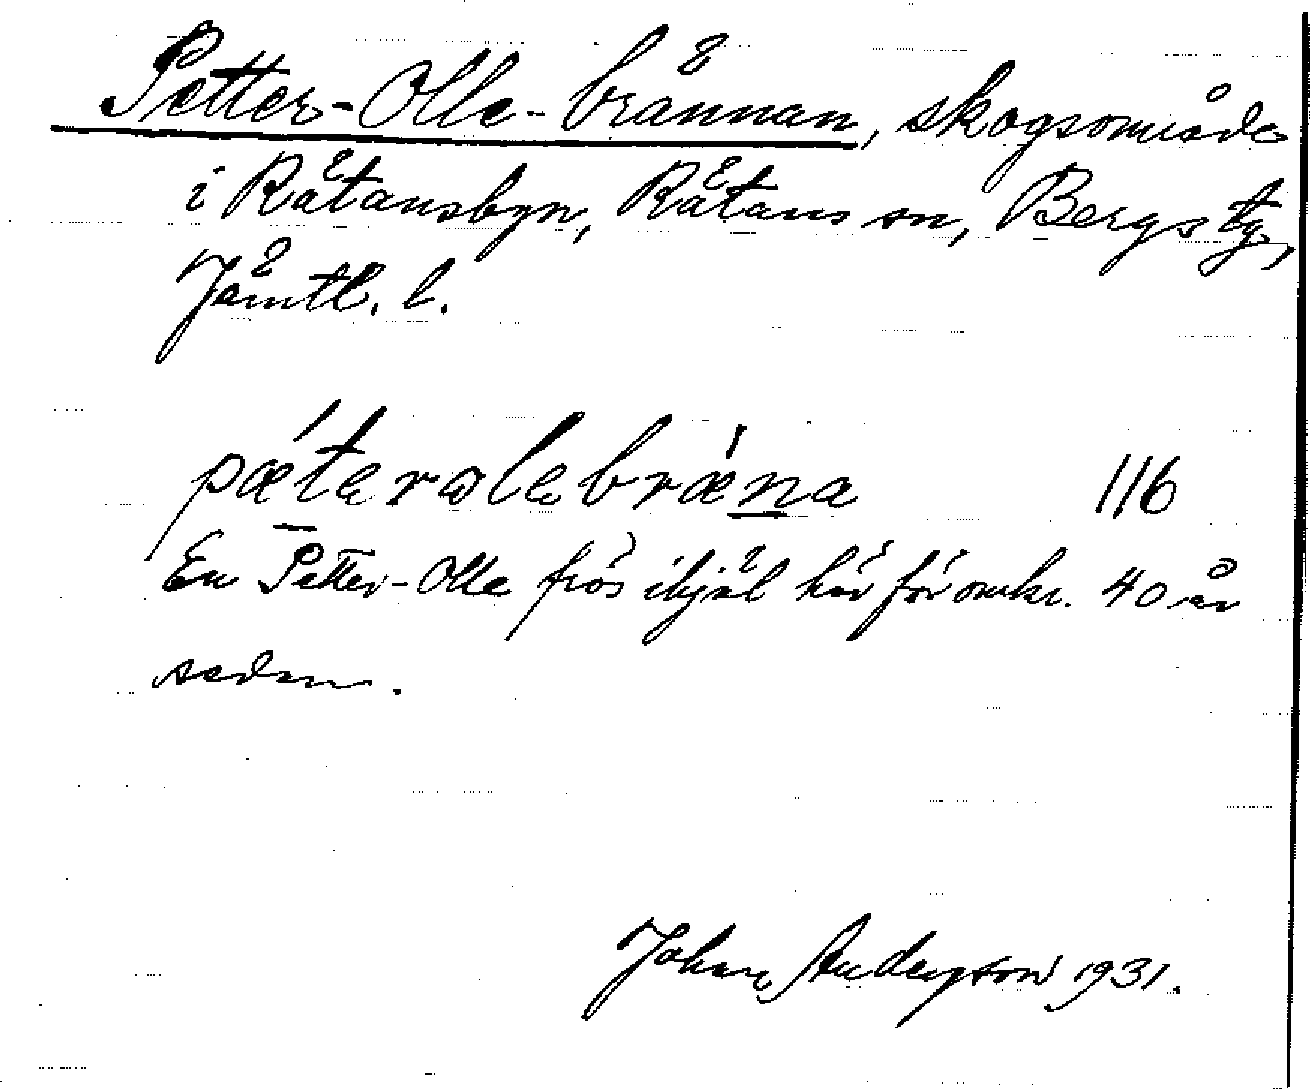 Petter-Olle-brännan, skogsområde
i Rätansbyn, Rätans sn, Bergs tg,
Jämtl. l.
pæ´terolebræ´na 116
En Petter-Olle frös ihjäl här för omkr. 40 år
sedan.
Johan Anderson 1931.